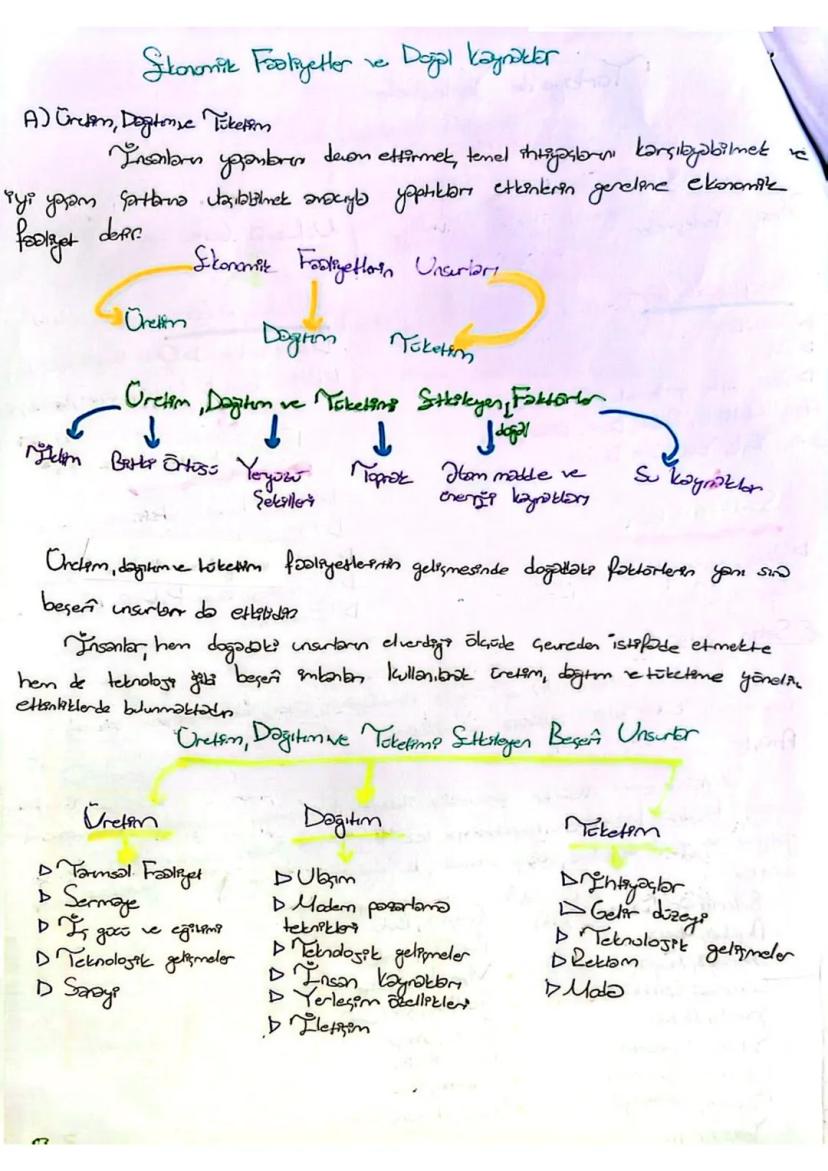 Ekonomik Faaliyetler ve Doğal Kaynaklar
A) Üretim, Dağıtım ve Tüketim
İnsanların yaşamlarını devam ettirmek, temel ihtiyaçlarını karşılayabilmek ve
iyi yaşam şartlarına ulaşabilmek amacıyla yaptıkları etkinlerin geneline ekonomik
faaliyet denir.
Ekonomik Faaliyetlerin Unsurları
Üretim Dağıtım Tüketim
Üretim, Dağıtım ve Tüketimi Etkileyen Faktörler
doğal
İklim Bitki Örtüsü Yeryüzü Toprak Ham madde ve Su kaynakları
Şekilleri enerji kaynakları
Üretim, dağıtım ve tüketim faaliyetlerinin gelişmesinde doğadaki faktörlerin yanı sıra
beşerî unsurları da etkilidir.
İnsanlar, hem doğadaki unsurların elverdiği ölçüde çevreden istifade etmekte
hem de teknoloji gibi beşerî imkanları kullanarak üretim, dağıtım ve tüketime yönelik
etkinliklerde bulunmaktadır.
Üretim, Dağıtım ve Tüketimi Etkileyen Beşerî Unsurlar
Üretim Dağıtım Tüketim
▷ Tarımsal Faaliyet
▷ Sermaye
▷ İş gücü ve eğitimi
▷ Teknolojik gelişmeler
▷ Sanayi
▷ Ulaşım
▷ Modern pazarlama
teknikleri
▷ Teknolojik gelişmeler
▷ İnsan kaynakları
▷ Yerleşim özellikleri
▷ İletişim
▷ İhtiyaçlar
▷ Gelir düzeyi
▷ Teknolojik gelişmeler
▷ Reklam
▷ Moda